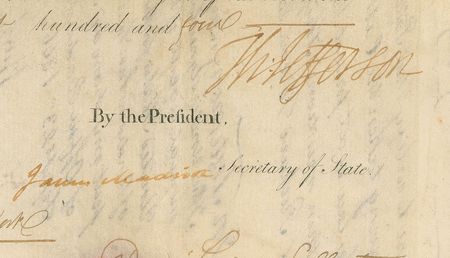 hundred and four
Th: Jefferson
By the Preſident,
James Madison Secretary of State.
York